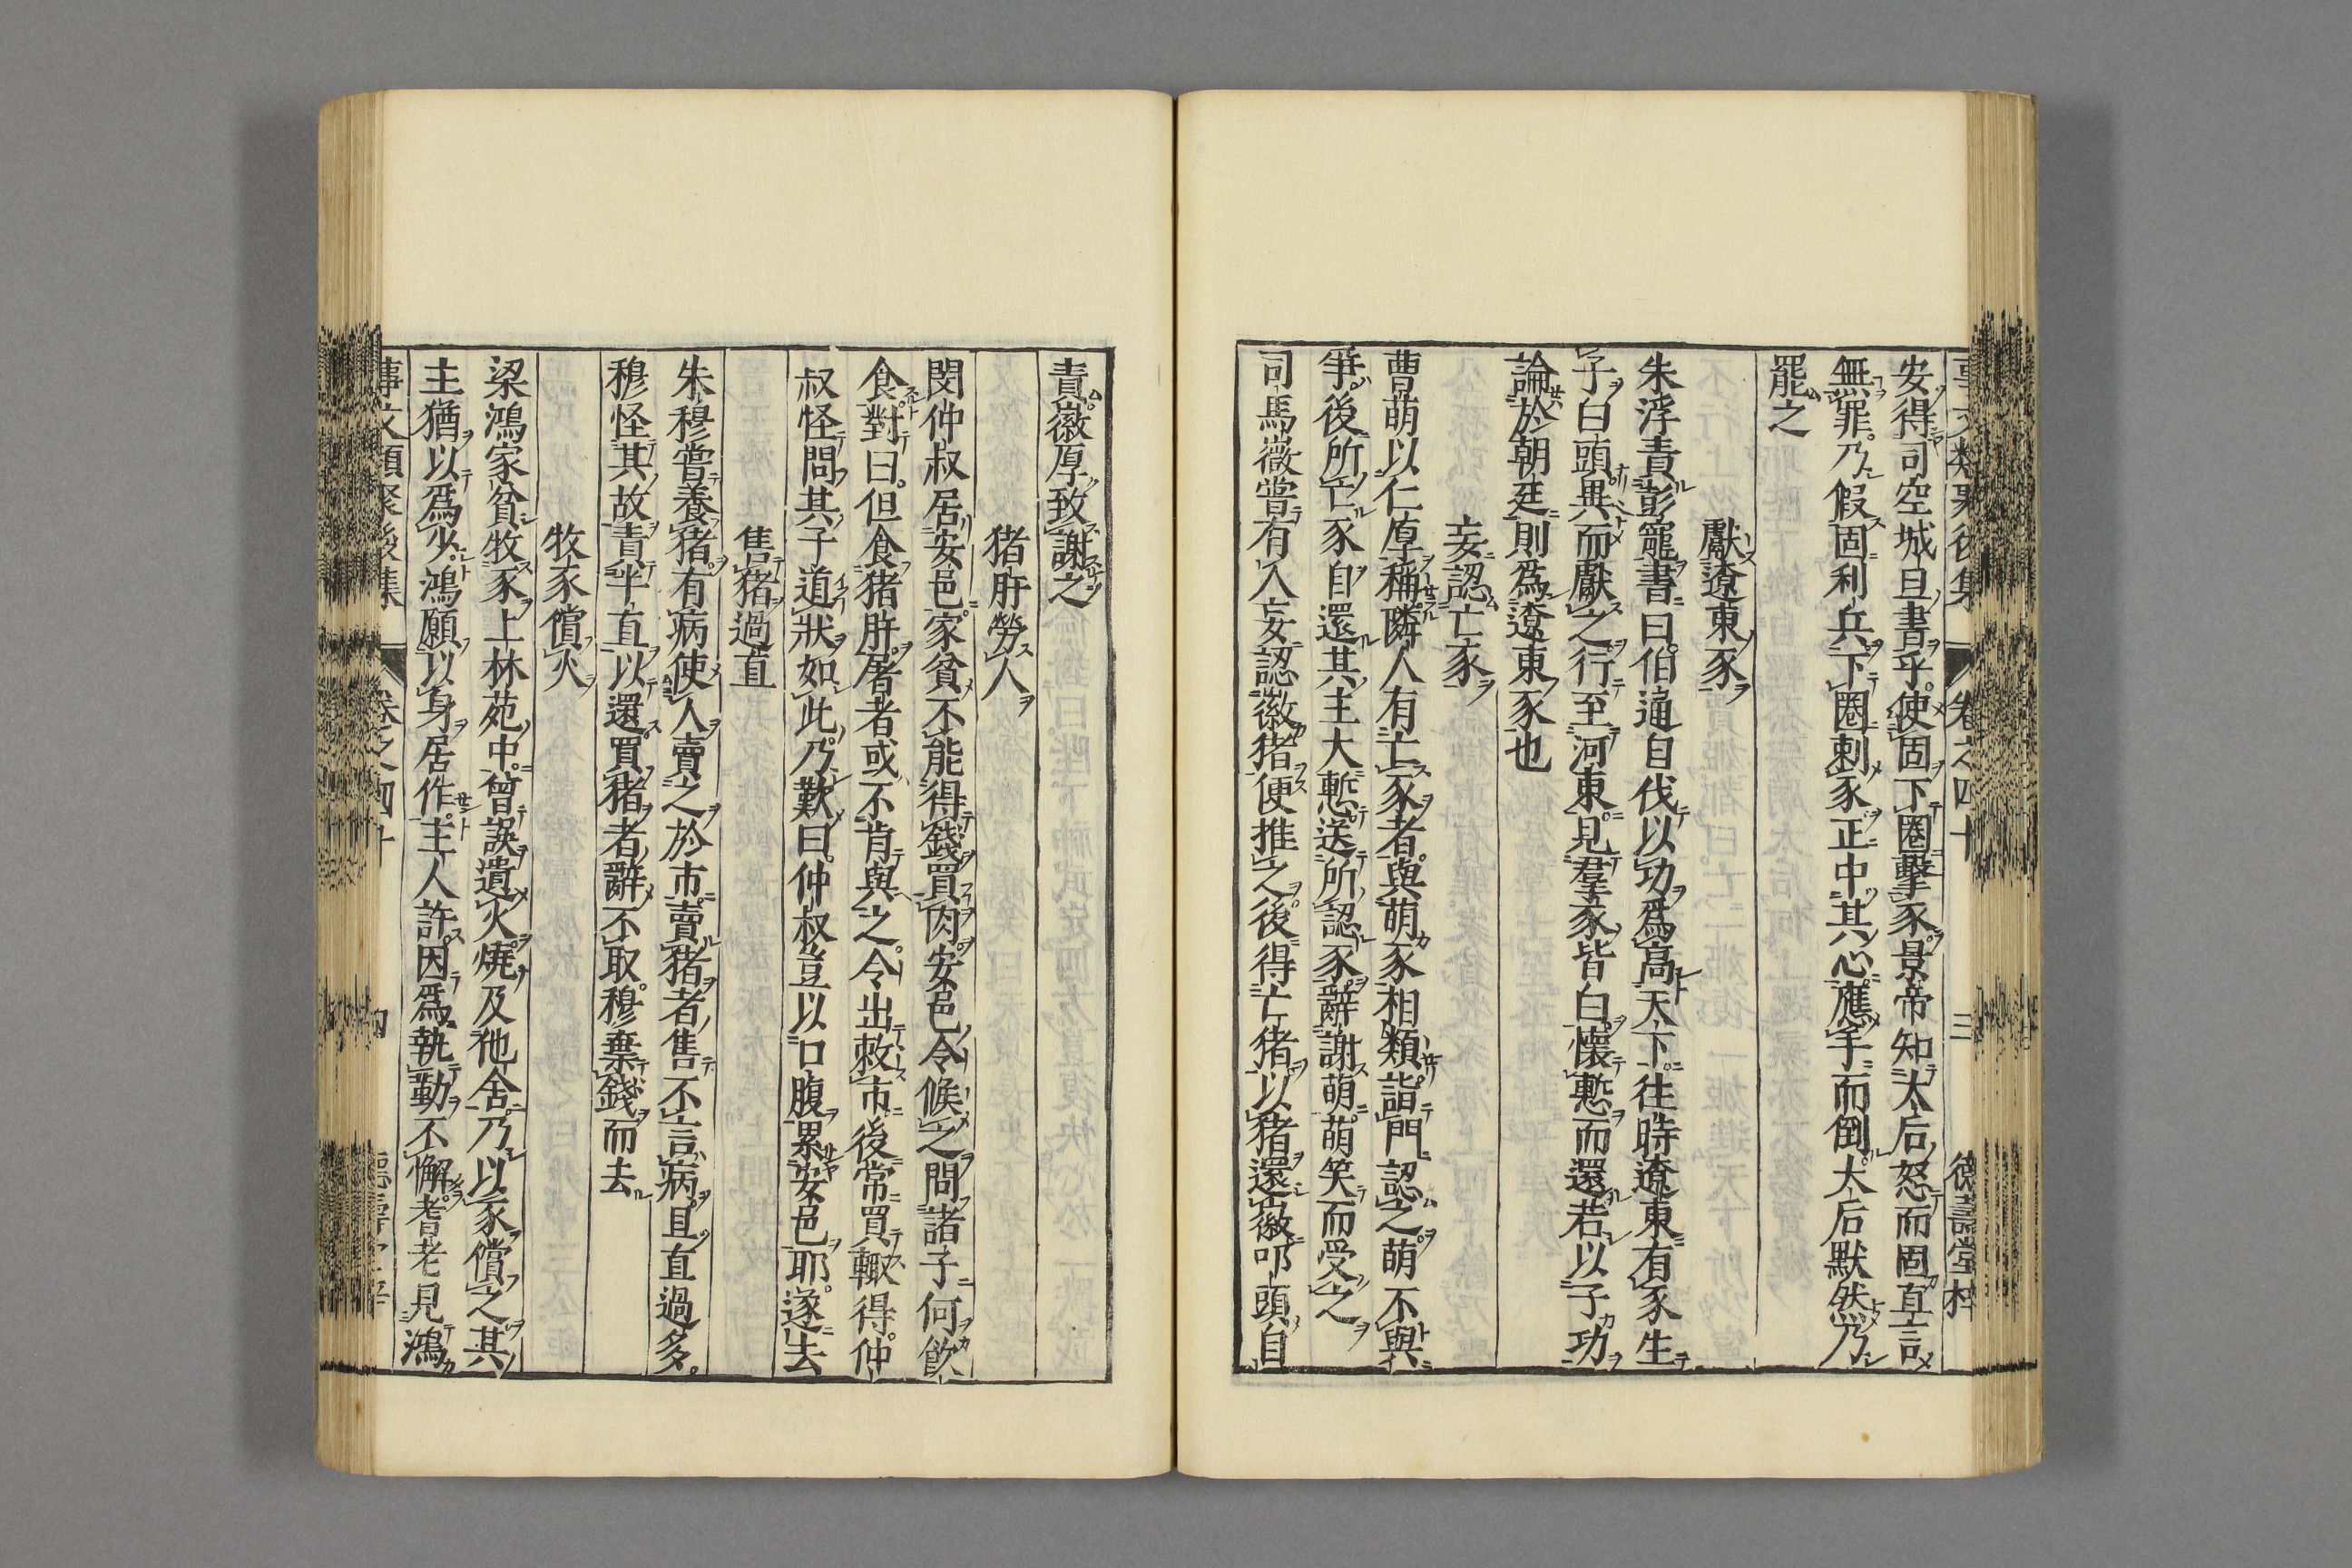 安得司空城旦書乎使固下圈擊豕景帝知太后怒而固直言
無罪乃假固利兵下圈刺豕正中其心應手而倒太后默然乃
罷之
獻遼東豕
朱浮責彭寵書曰伯通自伐以功爲高天下往時遼東有豕生
子白頭異而獻之行至河東見羣豕皆白懷慙而還若以子功
論於朝廷則爲遼東豕也
妄認亡豕
曹萌以仁厚稱隣人有亡豕者與萌豕相類詣門認之萌不與
爭後所亡豕自還其主大慙送所認豕辭謝萌萌笑而受之
司馬徽嘗有人妄認徽猪便推之後得亡猪以猪還徽叩頭自
責徽厚致謝之
猪肝勞人
閔仲叔居安邑家貧不能得錢買肉安邑令候之問諸子何飮
食對曰但食猪肝屠者或不肯與之令出敕市後常買輒得仲
叔怪問其子道狀如此乃歎曰仲叔豈以口腹累安邑耶遂去
售猪過直
朱穆嘗養猪有病使人賣之於市賣猪者售不言病且直過多
穆怪其故責半直以還買猪者辭不取穆棄錢而去
牧豕償火
梁鴻家貧牧豕上林苑中曾誤遺火燒及他舍乃以豕償之其
主猶以爲少鴻願以身居作主人許因爲執勤不懈耆老見鴻